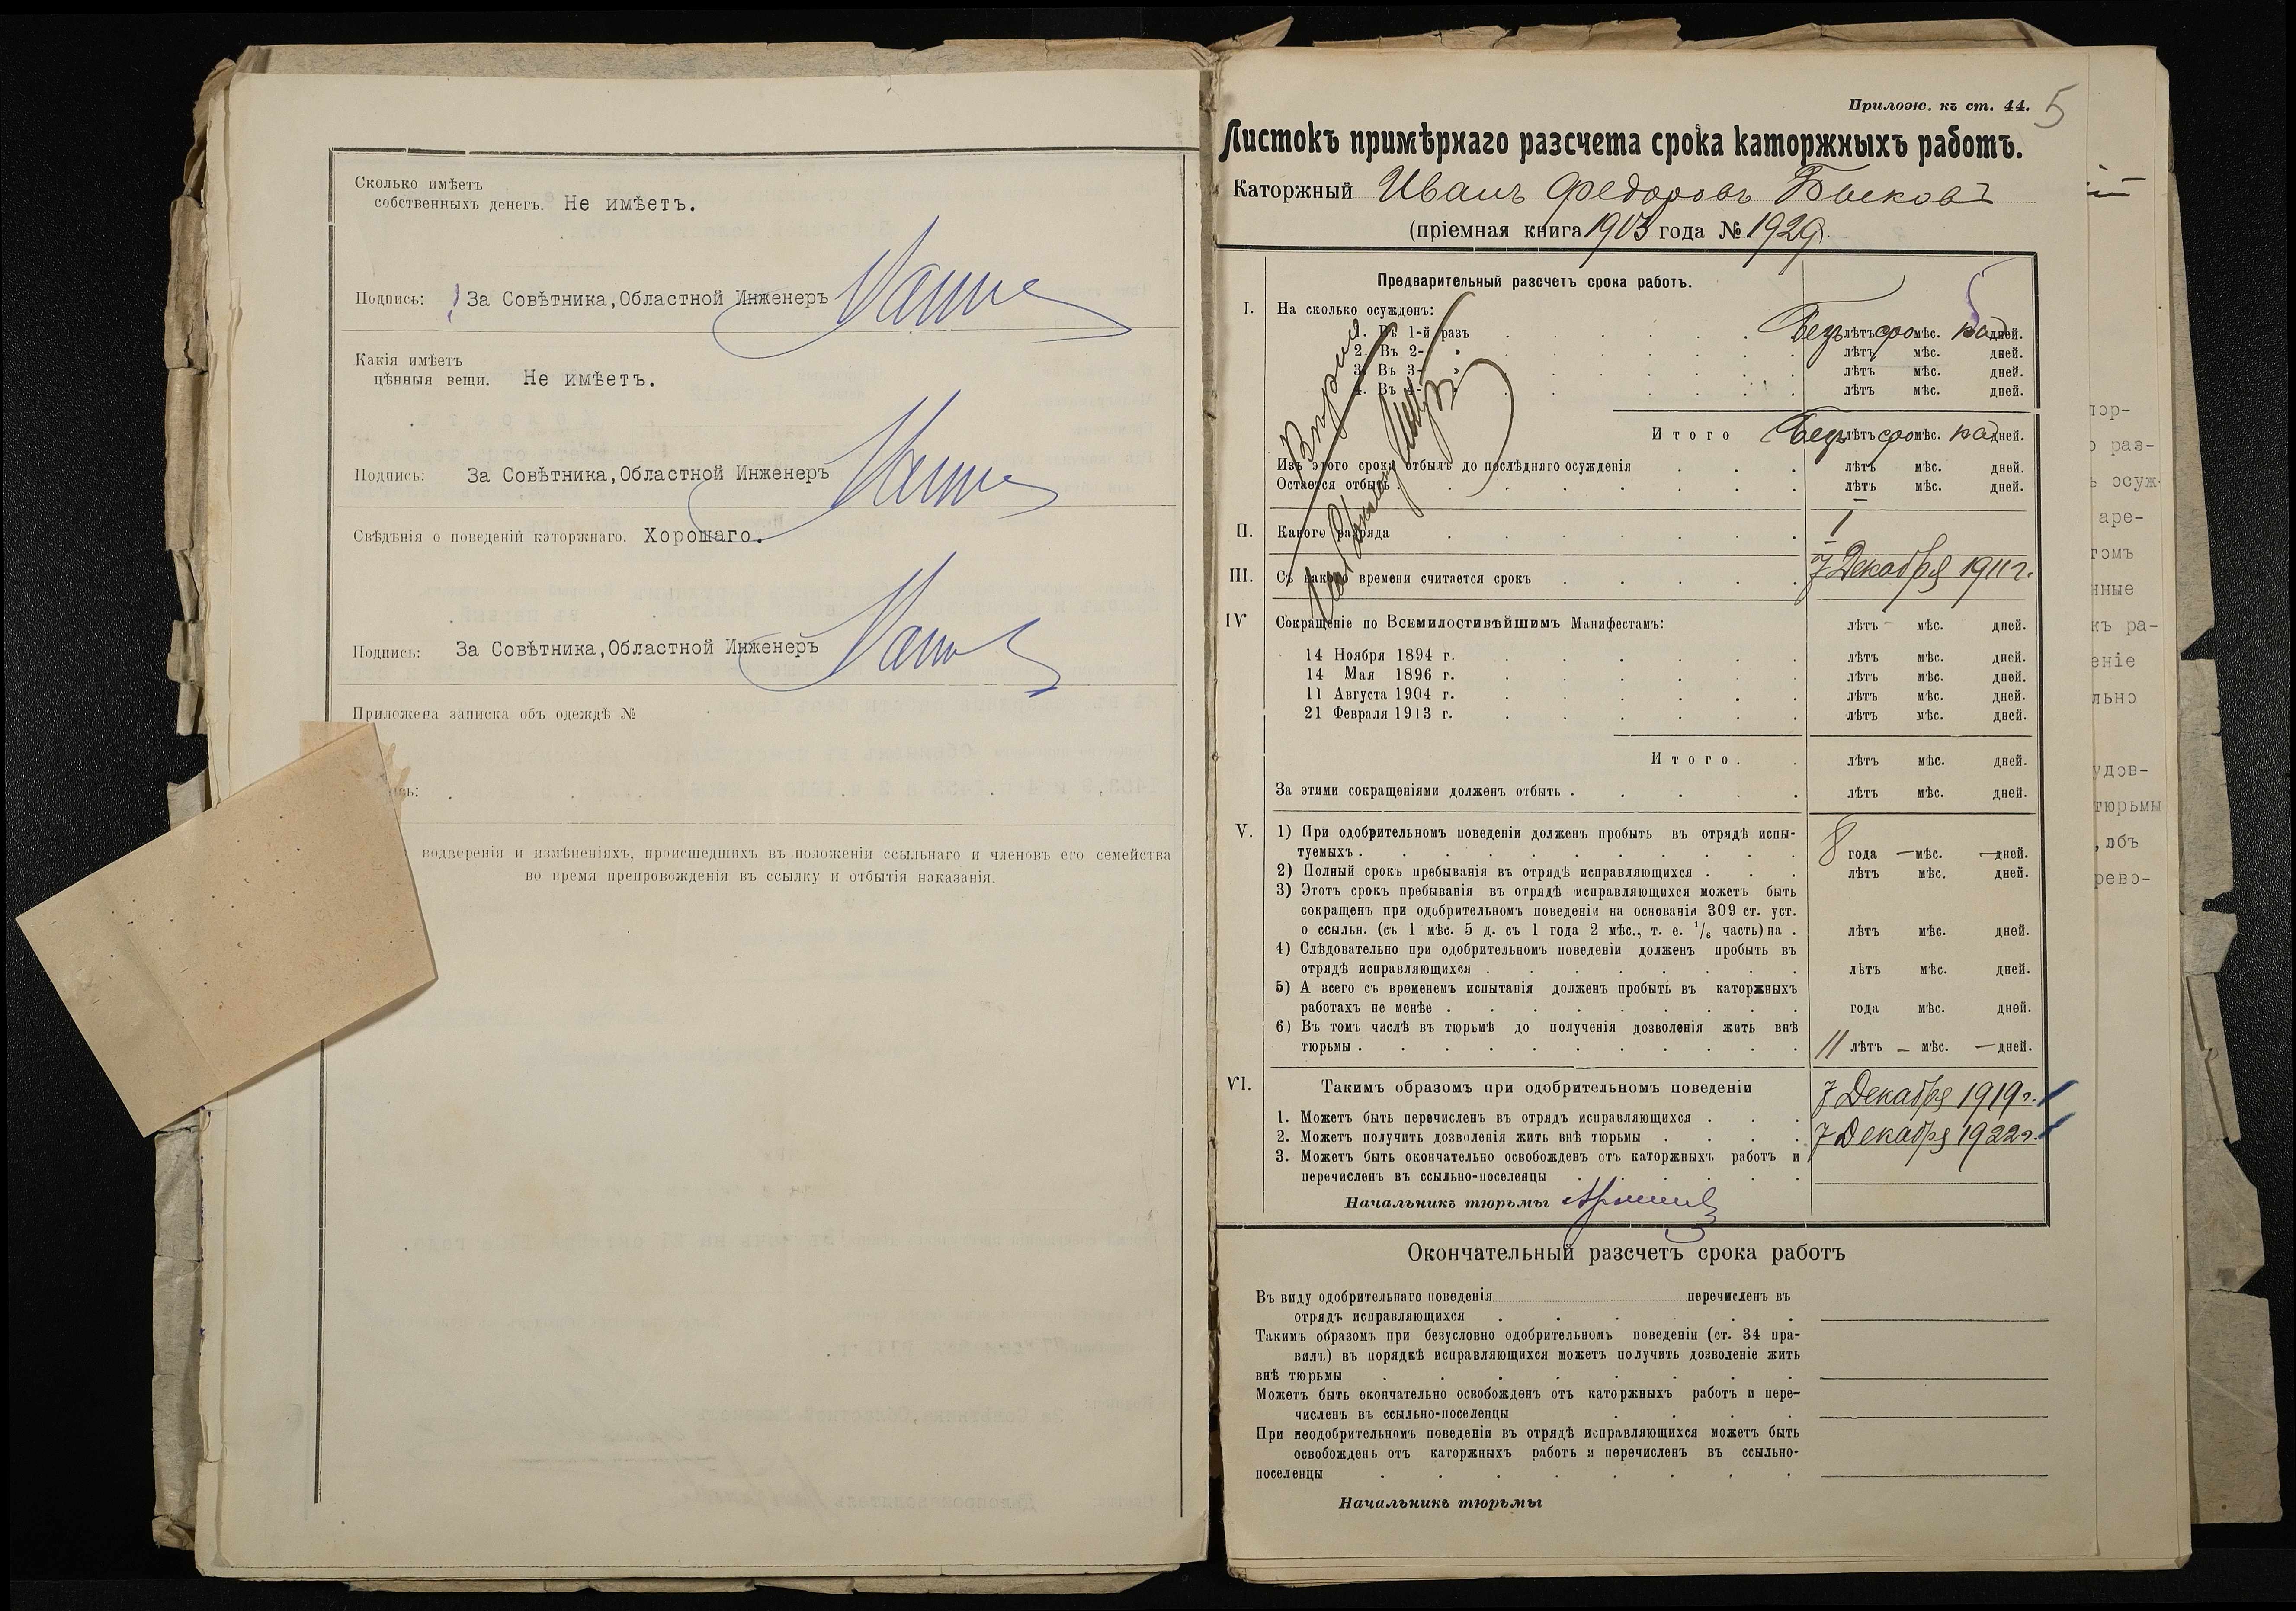 Сколько имѣетъ
собственныхъ денегъ. Не имѣетъ.
Подпись: За Совѣтника,Областной Инженеръ
Какія имѣетъ
цѣнныя вещи. Не имѣетъ.
Подпись: За Совѣтника,Областной Инженеръ
Свѣдѣнія о поведеніи каторжнаго. Хорошаго.
Подпись: За Совѣтника,Областной Инженеръ
Приложена записка объ одеждѣ №
сь:
водверенія и измѣненіяхъ, происшедшихъ въ положеніи ссыльнаго и членовъ его семейства
во время препровожденія въ ссылку и отбытія наказанія.
Прилож. къ ст. 44. 5
Листокъ примѣрнаго разсчета срока каторжныхъ работъ.
Каторжный Иванъ Федоровъ Быковъ
(пріемная книга 1913 года № 1929).
Предварительный разсчетъ срока работъ.
I. На сколько осужденъ:
1. Въ 1-й разъ Безъ лѣтъ сро мѣс. ка дней.
2. Въ 2- " лѣтъ мѣс. дней.
3. Въ 3- " лѣтъ мѣс. дней.
4. Въ 4- " лѣтъ мѣс. дней.
Итого Безъ лѣтъ сро мѣс. ка дней.
Изъ этого срока отбылъ до послѣдняго осужденія лѣтъ мѣс. дней.
Остается отбыть лѣтъ мѣс. дней.
II. Какого разряда I
III. Съ какого времени считается срокъ 7 Декабря 1911 г.
IV Сокращеніе по Всемилостивѣйшимъ Манифестамъ: лѣтъ мѣс. дней.
14 Ноября 1894 г. лѣтъ мѣс. дней.
14 Мая 1896 г. лѣтъ мѣс. дней.
11 Августа 1904 г. лѣтъ мѣс. дней.
21 Февраля 1913 г. лѣтъ мѣс. дней.
Итого. лѣтъ мѣс. дней.
За этими сокращеніями долженъ отбыть лѣтъ мѣс. дней.
V. 1) При одобрительномъ поведеніи долженъ пробыть въ отрядѣ испы-
туемыхъ 8 года — мѣс. — дней.
2) Полный срокъ пребыванія въ отрядѣ исправляющихся лѣтъ мѣс. дней.
3) Этотъ срокъ пребыванія въ отрядѣ исправляющихся можетъ быть
сокращенъ при одобрительномъ поведеніи на основаніи 309 ст. уст.
о ссыльн. (съ 1 мѣс. 5 д. съ 1 года 2 мѣс., т. е. 1/6 часть) на лѣтъ мѣс. дней.
4) Слѣдовательно при одобрительномъ поведеніи долженъ пробыть въ
отрядѣ исправляющихся лѣтъ мѣс. дней.
5) А всего съ временемъ испытанія долженъ пробыть въ каторжныхъ
работахъ не менѣе года мѣс. дней.
6) Въ томъ числѣ въ тюрьмѣ до полученія дозволенія жить внѣ
тюрьмы 11 лѣтъ — мѣс. — дней.
VI. Такимъ образомъ при одобрительномъ поведеніи
1. Можетъ быть перечисленъ въ отрядъ исправляющихся 7 Декабря 1919 г.
2. Можетъ получить дозволенія жить внѣ тюрьмы 7 Декабря 1922 г.
3. Можетъ быть окончательно освобожденъ отъ каторжныхъ работъ и
перечисленъ въ ссыльно-поселенцы
Начальникъ тюрьмы
Окончательный разсчетъ срока работъ
Въ виду одобрительнаго поведенія перечисленъ въ
отрядъ исправляющихся
Такимъ образомъ при безусловно одобрительномъ поведеніи (ст. 34 пра-
вилъ) въ порядкѣ исправляющихся можетъ получить дозволеніе жить
внѣ тюрьмы
Можетъ быть окончательно освобожденъ отъ каторжныхъ работъ и пере-
численъ въ ссыльно-поселенцы
При неодобрительномъ поведеніи въ отрядѣ исправляющихся можетъ быть
освобожденъ отъ каторжныхъ работъ и перечисленъ въ ссыльно-
поселенцы
Начальникъ тюрьмы
раз-
осуж-
аре-
томъ
нные
къ ра-
еніе
льно
удов-
тюрьмы
,объ
рево-